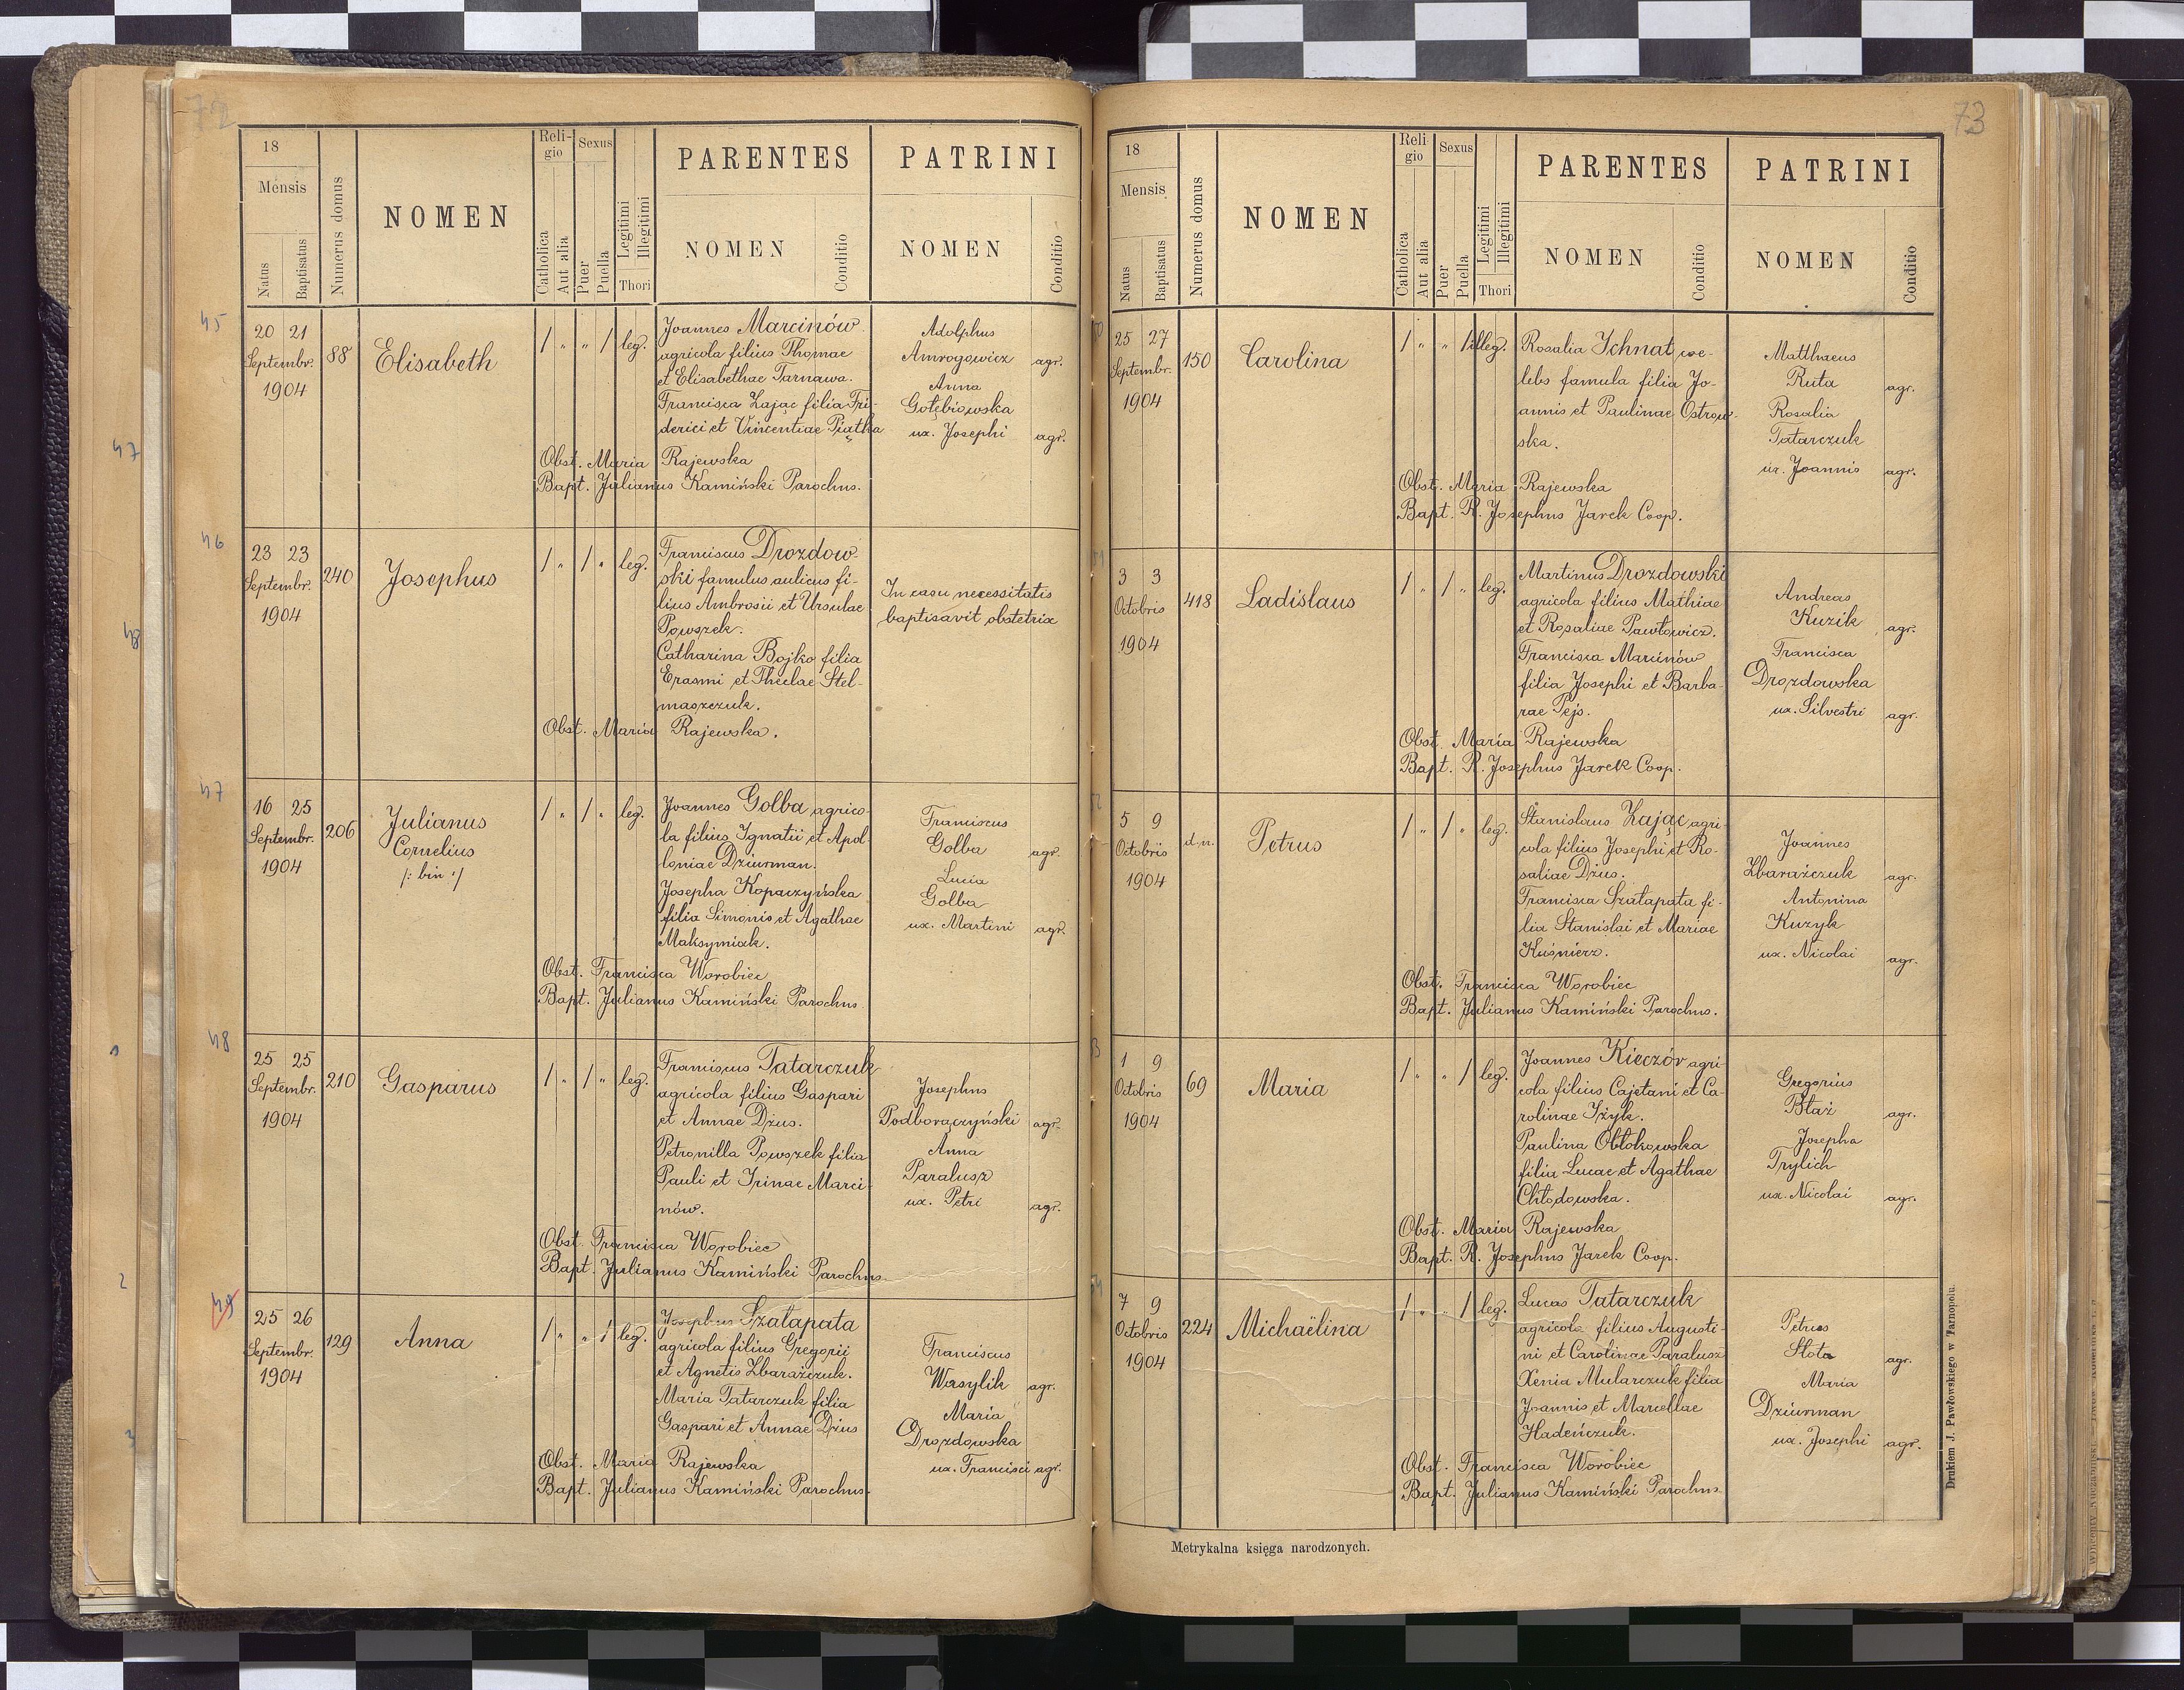 72
18
Mensis
Natus
Baptisatus
Numerus domus
NOMEN
Reli-
gio
Catholica
Aut alia
Sexus
Puer
Puella
Legitimi
Illegitimi
Thori
PARENTES
NOMEN
Conditio
PATRINI
NOMEN
Conditio
45
20 21
Septembr.
1904
88
Elisabeth
/ „ „ / leg.
Joannes Marcinów
agricola filius Thomae
et Elisabethae Tarnawa.
Francisca Zając filia Fri-
derici et Vincentiae Piątka
Adolphus
Amrogowicz agr.
Anna
Gołębiowska
ux. Josephi agr.
Obst. Maria Rajewska
Bapt. Julianus Kamiński Parochus.
46
23 23
Septembr.
1904
240
Josephus
/ „ / „ leg.
Franciscus Drozdow-
ski famulus aulicus fi-
lius Ambrosii et Ursulae
Powszek.
Catharina Bojko filia
Erasmi et Theclae Stel-
maszczuk.
In casu necessitatis
baptisavit obstetrix
Obst. Maria Rajewska.
47
16 25
Septembr.
1904
206
Julianus
Cornelius
/: bin :/
/ „ / „ leg.
Joannes Golba agrico-
la filius Ignatii et Apol-
loniae Dziurman.
Josepha Kopaczyńska
filia Simonis et Agathae
Maksymiak.
Franciscus
Golba agr.
Lucia
Golba
ux. Martini agr.
Obst. Francisca Worobiec
Bapt. Julianus Kamiński Parochus.
48
25 25
Septembr.
1904
210
Gasparus
/ „ / „ leg.
Franciscus Tatarczuk
agricola filius Gaspari
et Annae Dzus.
Petronilla Powszek filia
Pauli et Irinae Marci-
nów.
Josephus
Podborączyński agr.
Anna
Paralusz
ux. Petri agr.
Obst. Francisca Worobiec
Bapt. Julianus Kamiński Parochus.
49
25 26
Septembr.
1904
129
Anna
/ „ „ / leg.
Josephus Szałapata
agricola filius Gregorii
et Agnetis Zbarażczuk.
Maria Tatarczuk filia
Gaspari et Annae Dzius
Franciscus
Wasylik agr.
Maria
Drozdowska
ux. Francisci agr.
Obst. Maria Rajewska
Bapt. Julianus Kamiński Parochus.
73
18
Mensis
Natus
Baptisatus
Numerus domus
NOMEN
Reli-
gio
Catholica
Aut alia
Sexus
Puer
Puella
Legitimi
Illegitimi
Thori
PARENTES
NOMEN
Conditio
PATRINI
NOMEN
Conditio
25 27
Septembr.
1904
150
Carolina
/ „ „ / illeg.
Rosalia Ichnat, coe-
lebs famula filia Jo-
annis et Paulinae Ostrow-
ska.
Matthaeus
Ruta agr.
Rosalia
Tatarczuk
ux. Joannis agr.
Obst. Maria Rajewska
Bapt. R. Josephus Jarek Coop.
3 3
Octobris
1904
418
Ladislaus
/ „ / „ leg.
Martinus Drozdowski
agricola filius Mathiae
et Rosaliae Pawłowicz.
Francisca Marcinów
filia Josephi et Barba-
rae Pejs.
Andreas
Kuzik agr.
Francisca
Drozdowska
ux. Silvestri agr.
Obst. Maria Rajewska
Bapt. R. Josephus Jarek Coop.
5 9
Octobris
1904
d.n.
Petrus
/ „ / „ leg.
Stanislaus Zając agri-
cola filius Josephi et Ro-
saliae Dzus.
Francisca Szałapata fi-
lia Stanislai et Mariae
Kuśnierz.
Joannes
Zbarażczuk agr.
Antonina
Kuzyk
ux. Nicolai agr.
Obst. Francisca Worobiec
Bapt. Julianus Kamiński Parochus.
1 9
Octobris
1904
69
Maria
/ „ „ / leg.
Joannes Kieczór agri-
cola filius Cajetani et Ca-
rolinae Iżyk.
Paulina Obłokowska
filia Lucae et Agathae
Chłodowska.
Gregorius
Błaż agr.
Josepha
Trylich
ux. Nicolai agr.
Obst. Maria Rajewska
Bapt. R. Josephus Jarek Coop.
7 9
Octobris
1904
224
Michaëlina
/ „ „ / leg.
Lucas Tatarczuk
agricola filius Augusti-
ni et Carolinae Paralusz
Xenia Mularczuk filia
Joannis et Marcellae
Hadeńczuk.
Petrus
Słota agr.
Maria
Dziurman
ux. Josephi agr.
Obst. Francisca Worobiec
Bapt. Julianus Kamiński Parochus
Metrykalna księga narodzonych.
Drukiem J. Pawłowskiego w Tarnopolu.
47
48
2
3